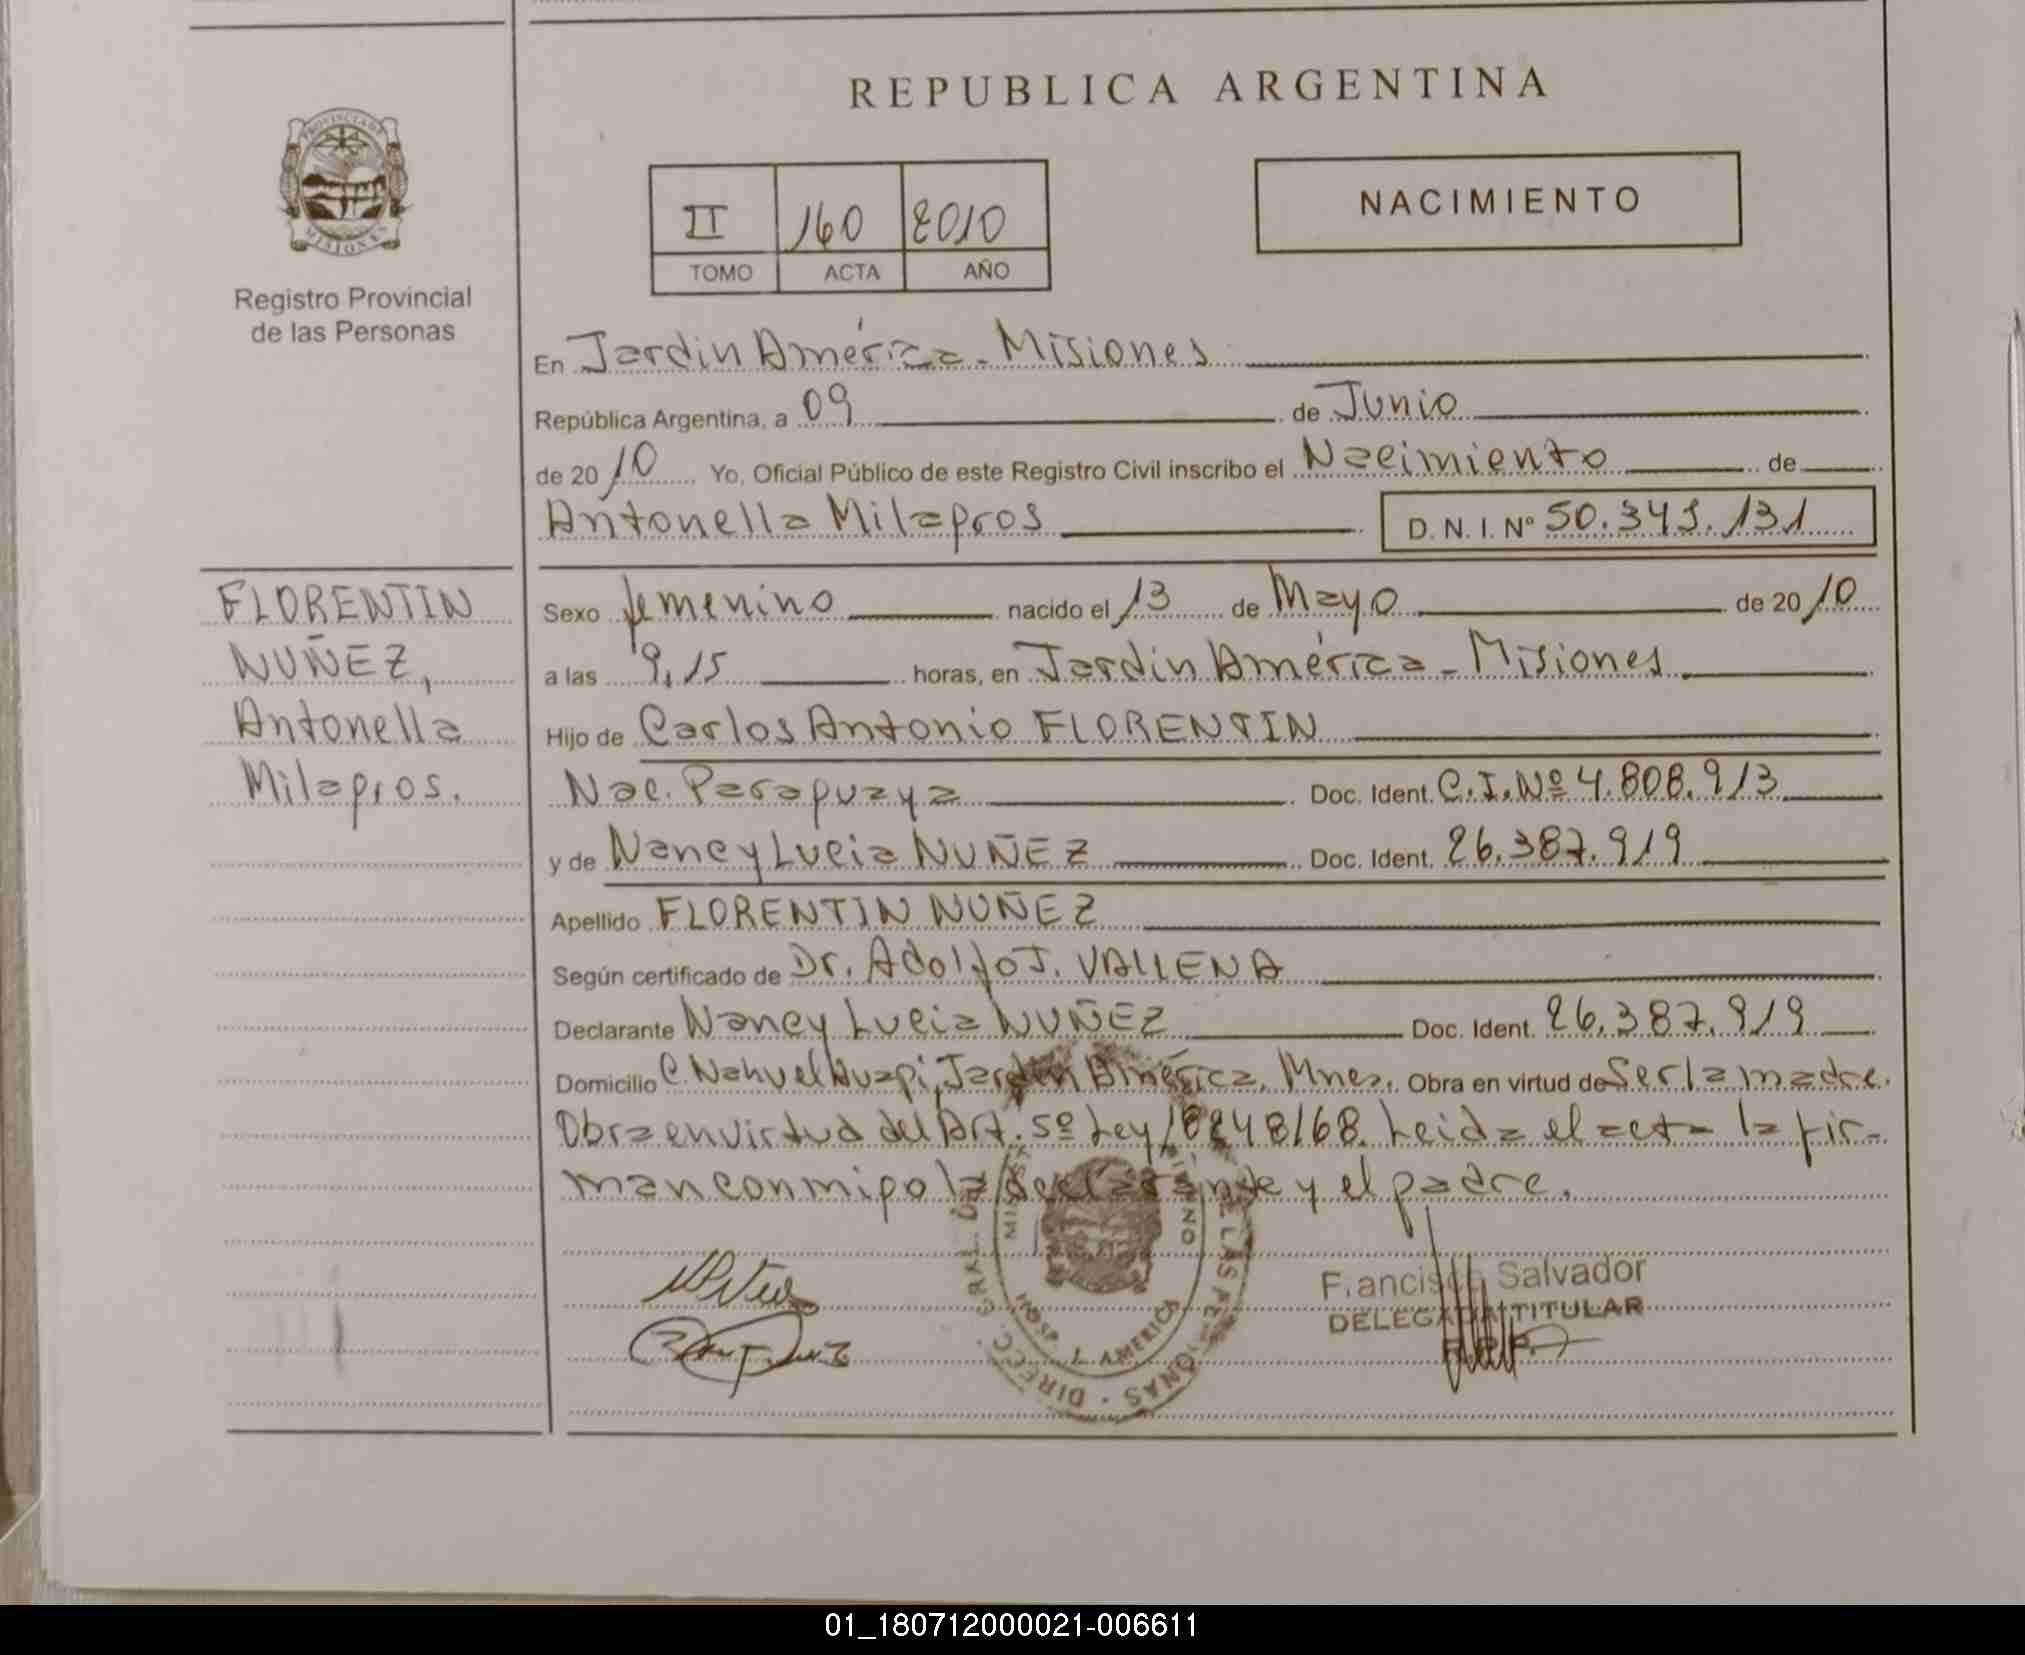 REPUBLICA ARGENTINA
PROVINCIA DE
MISIONES
Registro Provincial
de las Personas
II 160 2010
TOMO ACTA AÑO
NACIMIENTO
En Jardin América - Misiones
República Argentina, a 09 de Junio
de 2010 Yo, Oficial Público de este Registro Civil inscribo el Nacimiento de
Antonella Milagros D. N. I. Nº 50.341.131
FLORENTIN
NUÑEZ,
Antonella
Milagros.
Sexo femenino nacido el 13 de Mayo de 2010
a las 9,15 horas, en Jardin América - Misiones
Hijo de Carlos Antonio FLORENTIN
Nac. Paraguaya Doc. Ident. C.I. Nº 4.808.913
y de Nancy Lucia NUÑEZ Doc. Ident. 26.387.919
Apellido FLORENTIN NUÑEZ
Según certificado de Dr. Adolfo J. VALLENA
Declarante Nancy Lucia NUÑEZ Doc. Ident. 26.387.919
Domicilio C. Nahuel Huapi, Jardin América, Mnes. Obra en virtud de Ser la madre.
Obra en virtud del Art. 5º Ley 18248/68. Leida el acta la fir-
man conmigo la declarante y el padre.
Salvador
TITULAR
HOSP. J. AMERICA
01_180712000021-006611